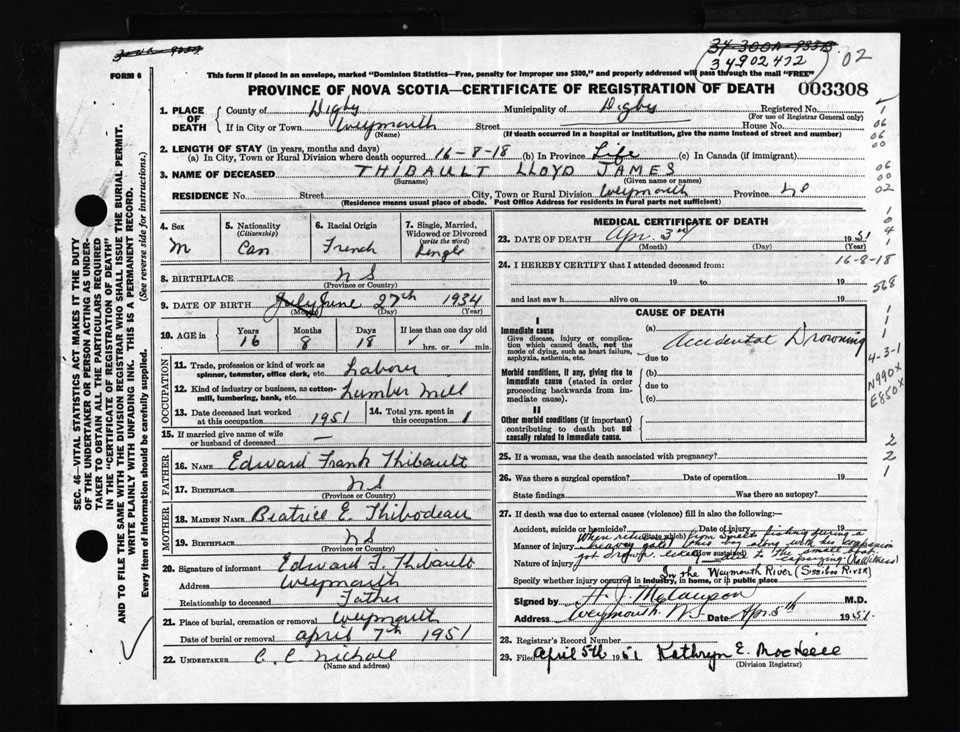 34-300A-955B
34902472 02
FORM 6
This form if placed in an envelope, marked "Dominion Statistics—Free, penalty for improper use $300," and properly addressed will pass through the mail "FREE"
PROVINCE OF NOVA SCOTIA—CERTIFICATE OF REGISTRATION OF DEATH 003308
1. PLACE OF DEATH
County of Digby Municipality of Digby Registered No.
(For use of Registrar General only)
If in City or Town Weymouth Street House No.
(Name) (If death occurred in a hospital or institution, give the name instead of street and number)
2. LENGTH OF STAY (in years, months and days)
(a) In City, Town or Rural Division where death occurred 16-8-18 (b) In Province Life (c) In Canada (if immigrant)
3. NAME OF DECEASED THIBAULT LLOYD JAMES
(Surname) (Given name or names)
RESIDENCE No. Street City, Town or Rural Division Weymouth Province NS
(Residence means usual place of abode. Post Office Address for residents in rural parts not sufficient)
4. Sex
M
5. Nationality
(Citizenship)
Can
6. Racial Origin
French
7. Single, Married, Widowed or Divorced
(write the word)
Single
8. BIRTHPLACE NS
(Province or Country)
9. DATE OF BIRTH July June 27th 1934
(Month) (Day) (Year)
10. AGE in
Years Months Days If less than one day old
16 8 18 hrs. or min.
OCCUPATION
11. Trade, profession or kind of work as spinner, teamster, office clerk, etc. Labour
12. Kind of industry or business, as cotton-mill, lumbering, bank, etc. Lumber Mill
13. Date deceased last worked at this occupation 1951
14. Total yrs. spent in this occupation 1
15. If married give name of wife or husband of deceased —
FATHER
16. NAME Edward Frank Thibault
17. BIRTHPLACE NS
(Province or Country)
MOTHER
18. MAIDEN NAME Beatrice E. Thibodeau
19. BIRTHPLACE NS
(Province or Country)
20. Signature of informant Edward F. Thibault
Address Weymouth
Relationship to deceased Father
21. Place of burial, cremation or removal Weymouth
Date of burial or removal April 7th 1951
22. UNDERTAKER C. C. Nichall
(Name and address)
MEDICAL CERTIFICATE OF DEATH
23. DATE OF DEATH Apr. 3rd 1951
(Month) (Day) (Year)
24. I HEREBY CERTIFY that I attended deceased from: 16-8-18
19 to 19
and last saw h alive on 19
568
CAUSE OF DEATH
I
Immediate cause
Give disease, injury or complication which caused death, not the mode of dying, such as heart failure, asphyxia, asthenia, etc.
(a) Accidental Drowning
due to
Morbid conditions, if any, giving rise to immediate cause (stated in order proceeding backwards from immediate cause).
(b)
due to
(c)
II
Other morbid conditions (if important) contributing to death but not causally related to immediate cause.
4-3-1
N990X
E850X
25. If a woman, was the death associated with pregnancy?
26. Was there a surgical operation? Date of operation 19
State findings Was there an autopsy?
27. If death was due to external causes (violence) fill in also the following:
Accident, suicide or homicide? Date of injury 19
(State which)
When returning from Smelt fishing during a
Manner of injury heavy gale this boy along with his companion
(How sustained)
Nature of injury got drowned due to the small boat capsizing (No Witness)
In the Weymouth River (Sissiboo River)
Specify whether injury occurred in industry, in home, or in public place
Signed by H. J. Melanson M.D.
Address Weymouth NS Date Apr. 5th 1951
28. Registrar's Record Number
29. Filed April 5th 1951 Kathryn E. MacNeill
(Division Registrar)
SEC. 46—VITAL STATISTICS ACT MAKES IT THE DUTY
OF THE UNDERTAKER OR PERSON ACTING AS UNDERTAKER TO OBTAIN ALL THE PARTICULARS REQUIRED
IN THE "CERTIFICATE OF REGISTRATION OF DEATH"
AND TO FILE THE SAME WITH THE DIVISION REGISTRAR WHO SHALL ISSUE THE BURIAL PERMIT.
WRITE PLAINLY WITH UNFADING INK. THIS IS A PERMANENT RECORD.
Every item of information should be carefully supplied. (See reverse side for instructions.)